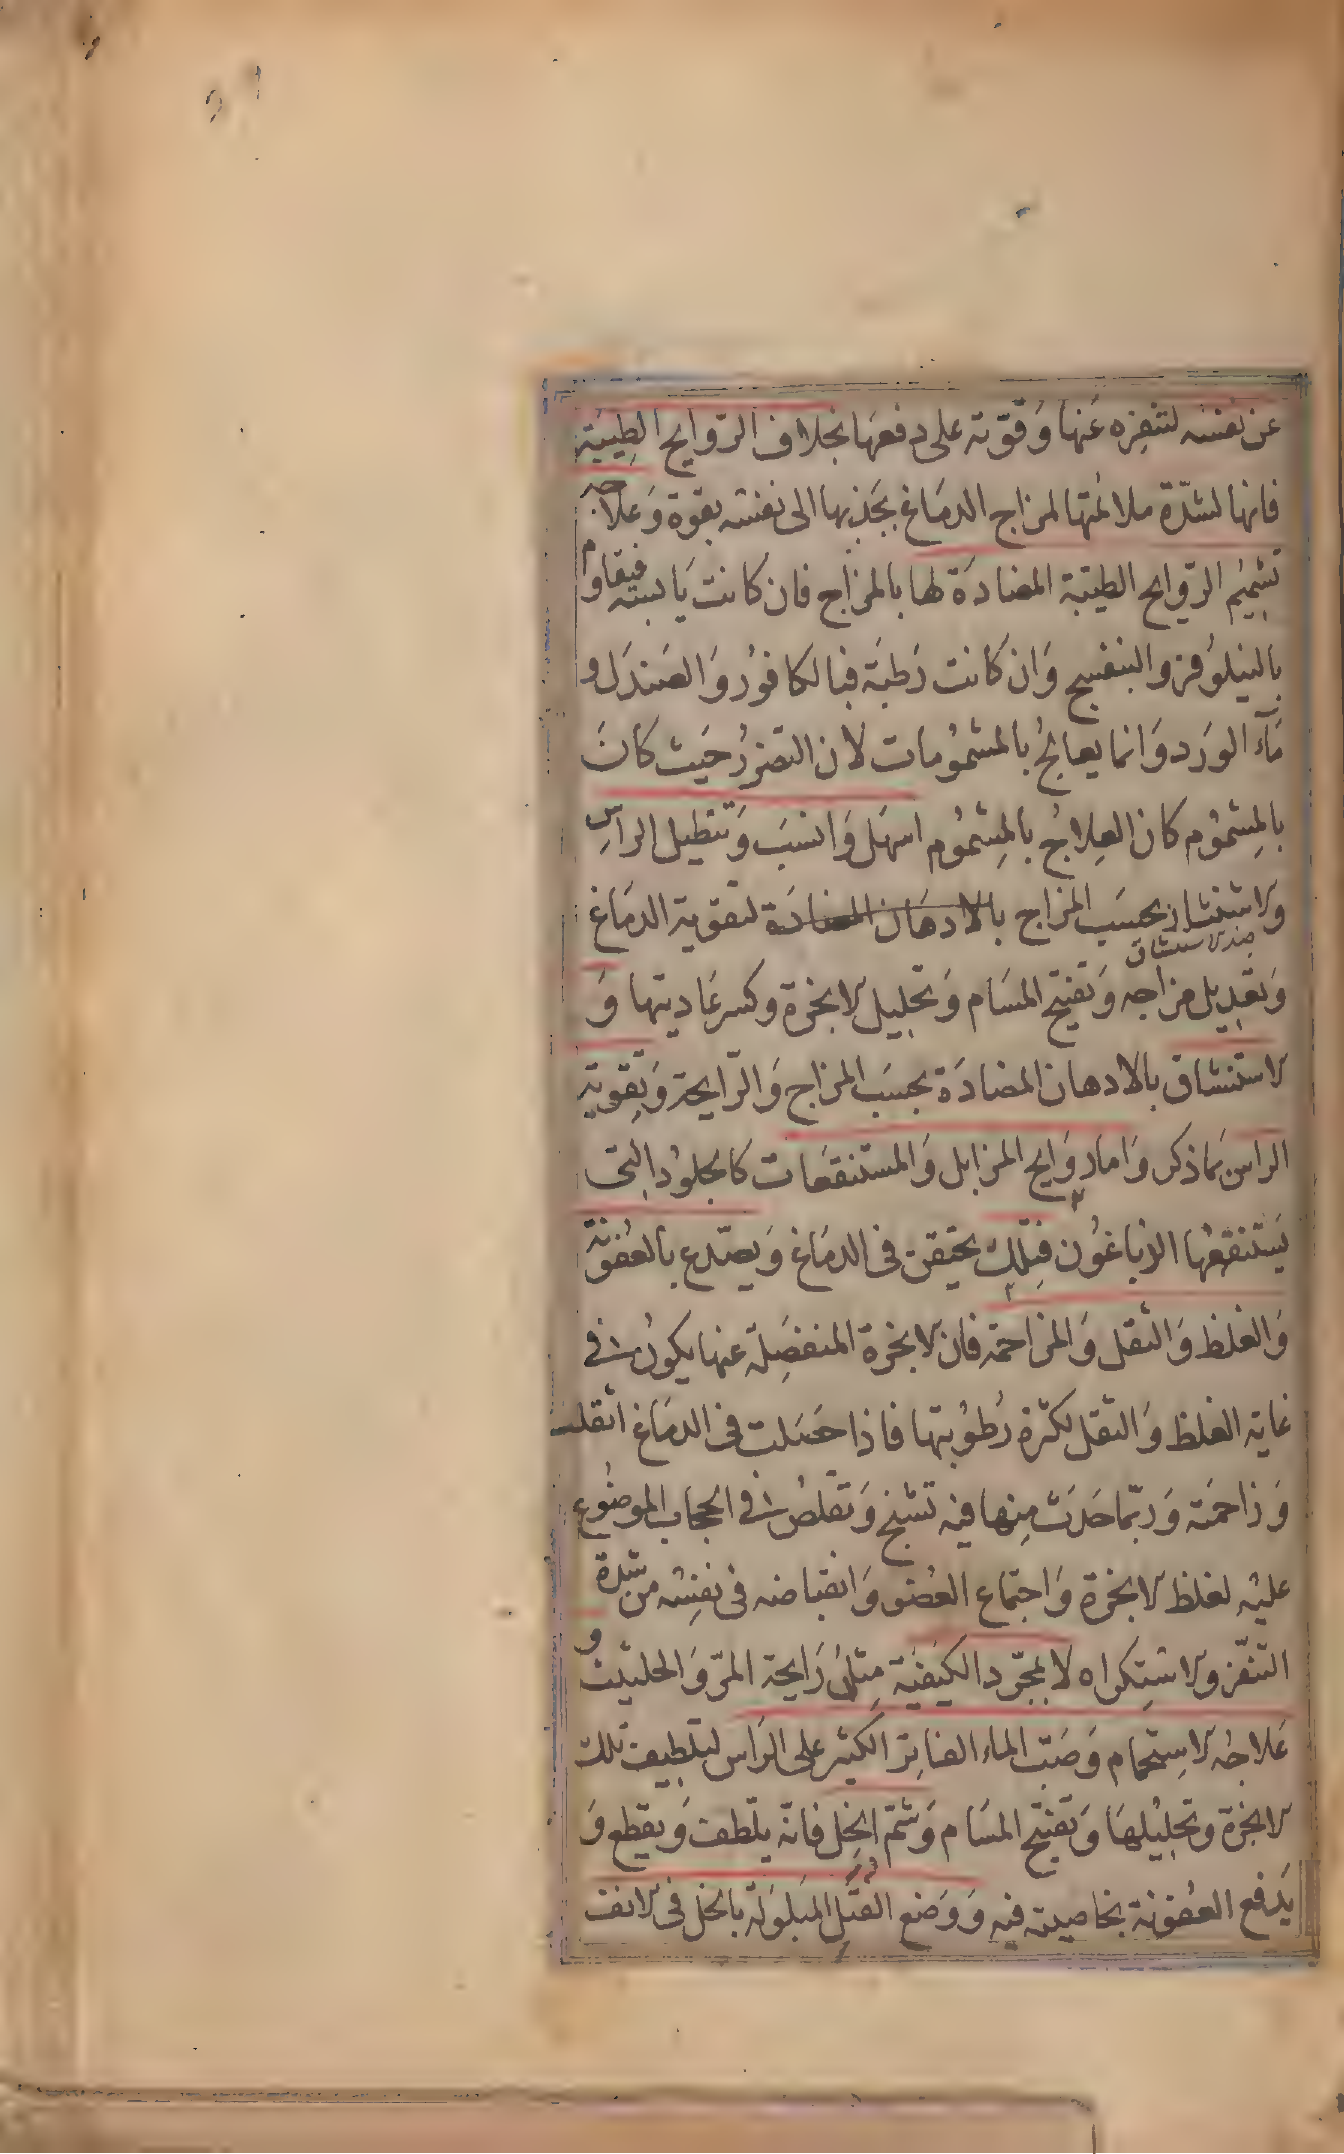 عن نفسه لتنفره عنها وقوته على دفعها بخلاف الروايح الطيبة
فانها لشدة ملائمتها لمزاج الدماغ يجذبها الى نفسه بقوة وعلاجه
تشميم الروايح الطيبة المضادة لها بالمزاج فان كانت يابسة فيقاوم
بالنيلوفر والبنفسج وان كانت رطبة فبالكافور والصندل و
مآء الورد وانما يعالج بالمشمومات لان التضرر حيث كان
بالمشموم كان العلاج بالمشموم اسهل وانسب وتنطيل الراس
والاستنشاق بحسب المزاج بالادهان المضادة لتقوية الدماغ
وتعديل مزاجه وتفتيح المسام وتحليل الابخرة وكسر عاديتها و
الاستنشاق بالادهان المضادة بحسب المزاج والرايحة وتقوية
الراس بما ذكر واما روايح المزابل والمستنقعات كالجلود التى
يستنقعها الدباغون فتلك يحتقن فى الدماغ ويصدع بالعفونة
والغلظ والثقل والمزاحمة فان الابخرة المنفصلة عنها يكون فى
غاية الغلظ والثقل لكثرة رطوبتها فاذا حصلت فى الدماغ اثقلت
وزاحمته وربما حدث منها فيه تشنج وتقلص فى الحجاب الموضوع
عليه لغلظ الابخرة واجتماع العضو وانقباضه فى نفسه من شدة
التنفر والاستكراه لا لمجرد الكيفية مثل رايحة المر والحلتيت و
علاجه الاستحمام وصب الماء الفاتر الكثير على الراس لتلطيف تلك
الابخرة وتحليلها وتفتيح المسام وشم الخل فانه يلطف ويقطع و
يدفع العفونة بخاصية فيه ووضع الفتل المبلولة بالخل فى الانف